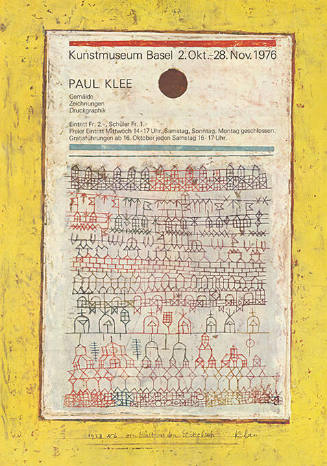 Kunstmuseum Basel 2.Okt.-28.Nov.1976
PAUL KLEE
Gemälde
Zeichnungen
Druckgraphik
Eintritt Fr. 2.-, Schüler Fr. 1.-
Freier Eintritt Mittwoch 14-17 Uhr, Samstag, Sonntag. Montag geschlossen.
Gratisführungen ab 16. Oktober jeden Samstag 16-17 Uhr.